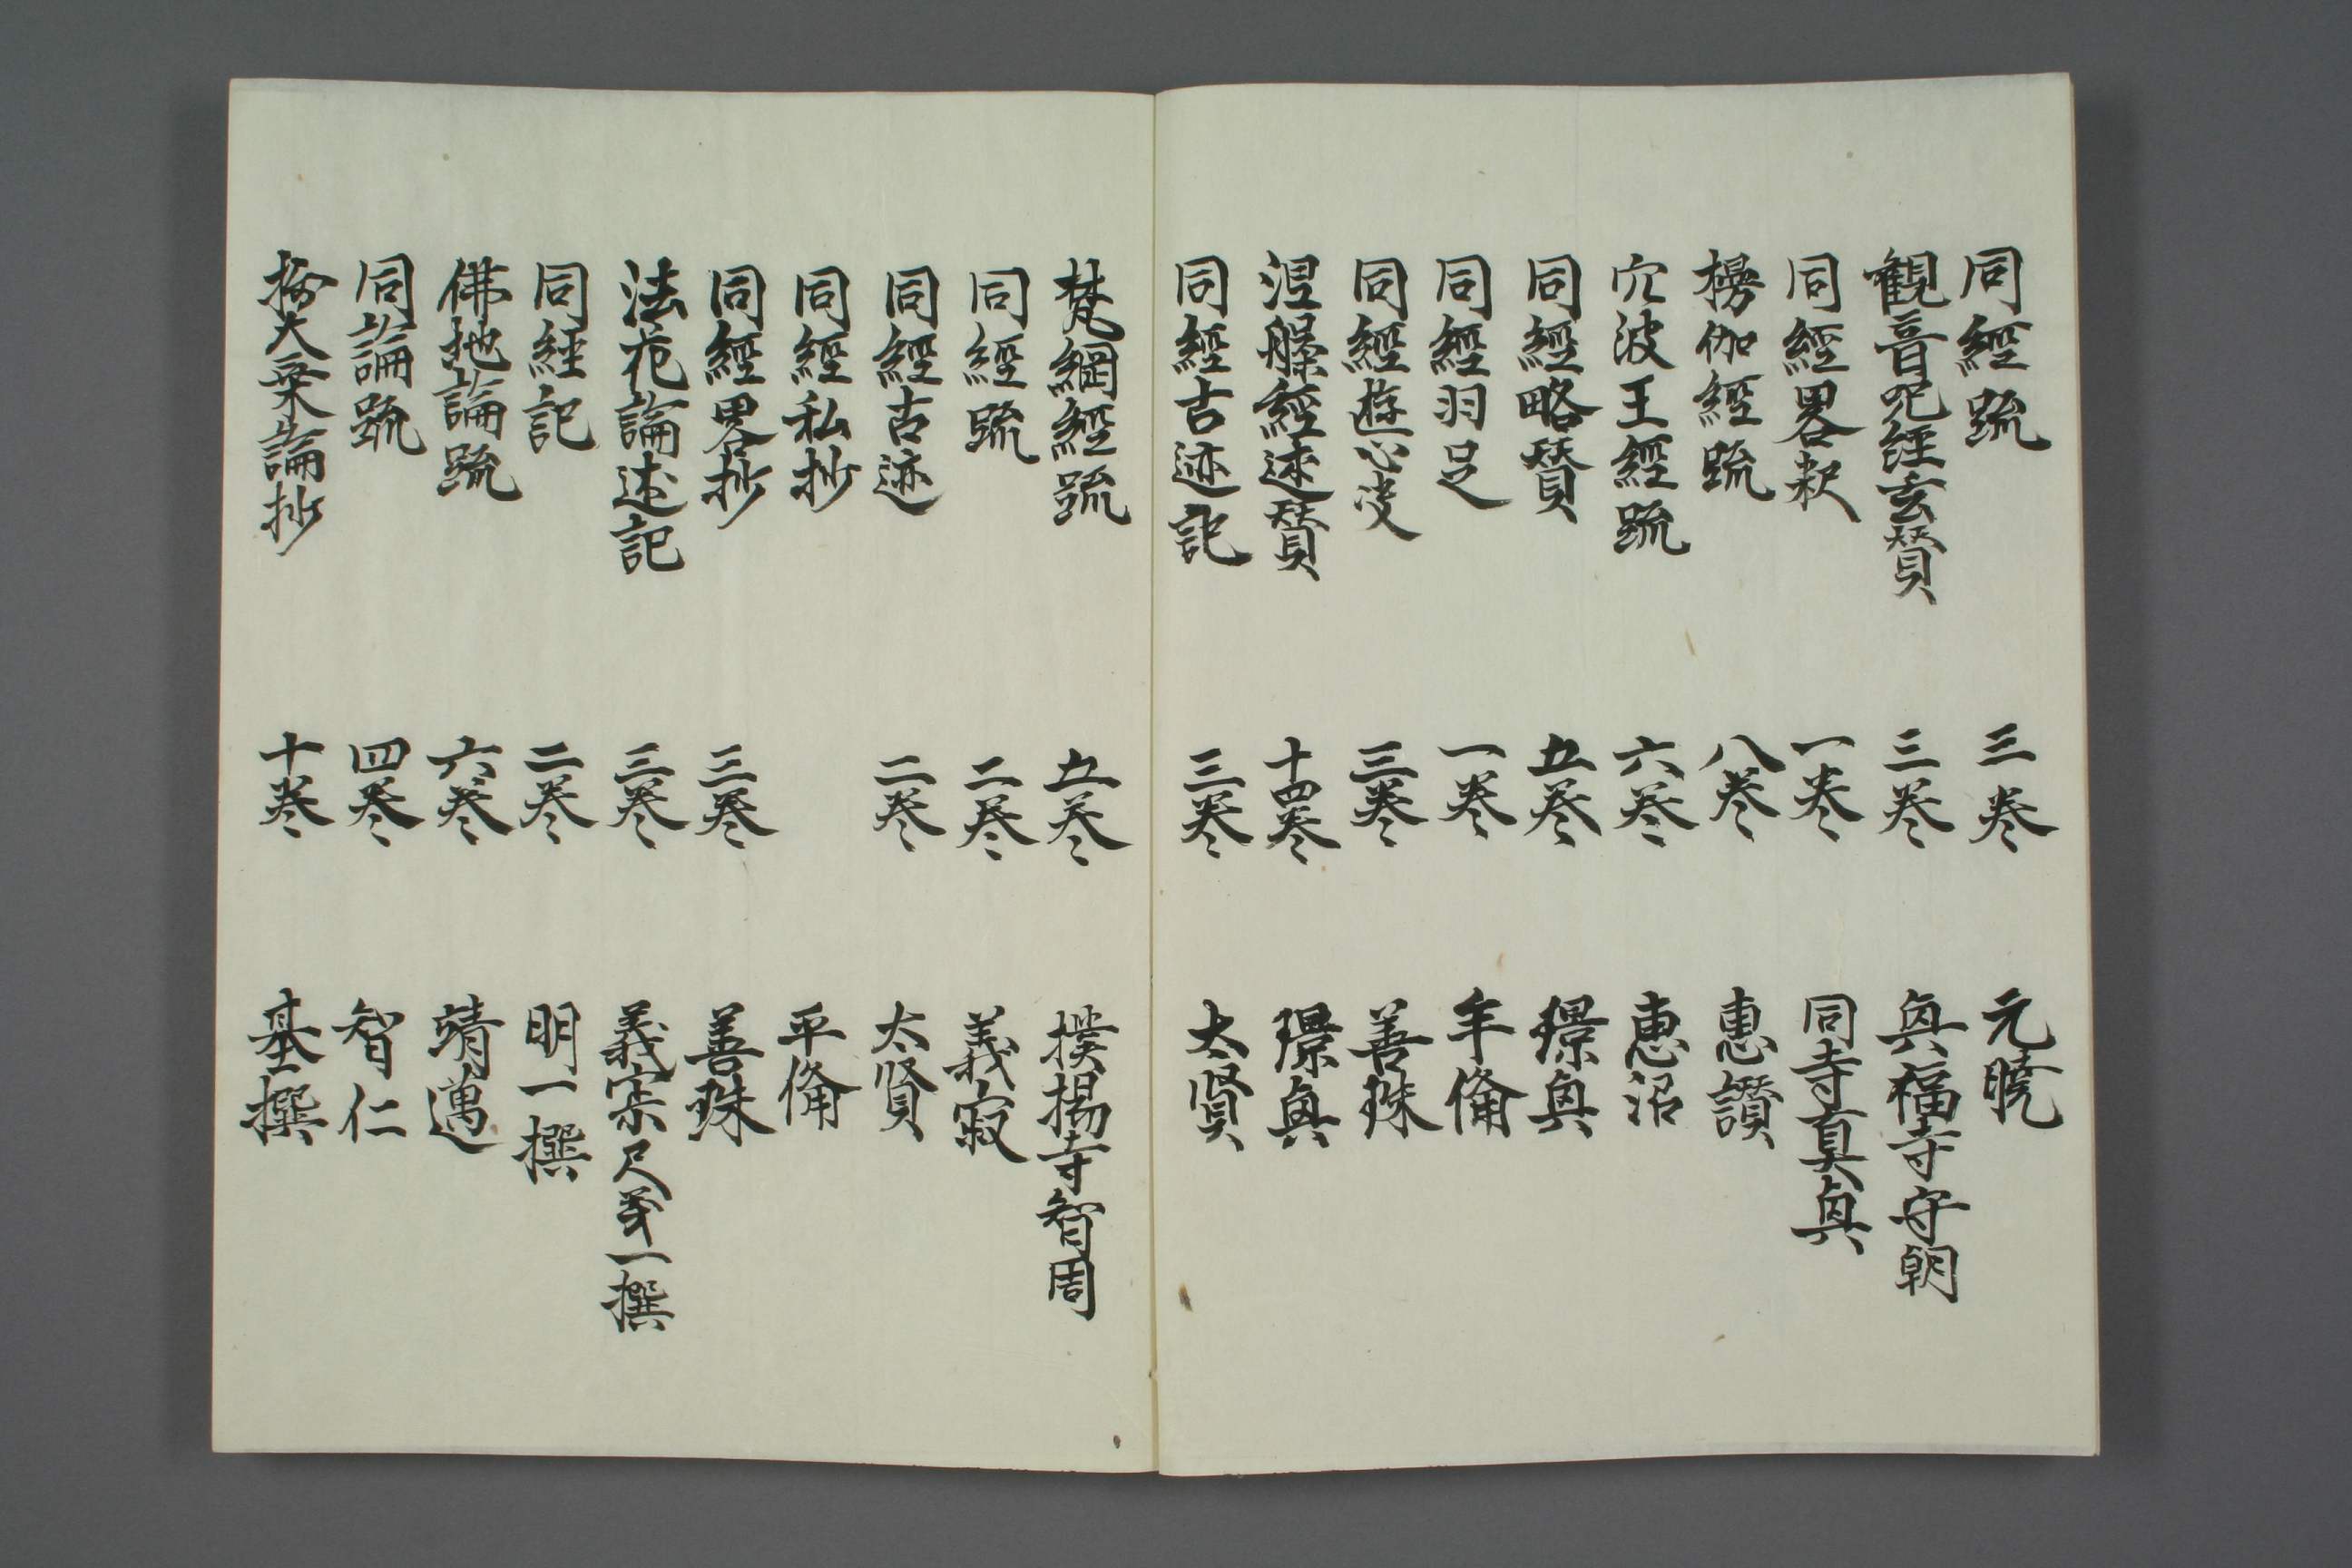 同經疏 三卷 元曉
観音咒經玄賛 三卷 興福寺守朝
同經畧釈 一卷 同寺真興
楞伽經疏 八卷 惠讃
穴波王經疏 六卷 惠沼
同經略賛 五卷 璟興
同經羽足 一卷 平備
同經遊心 三卷 善珠
涅槃經述賛 十四卷 璟興
同經古迹記 三卷 太賢
梵網經疏 五卷 撲揚寺智周
同經疏 二卷 義寂
同經古迹 二卷 太賢
同經私抄 平備
同經畧抄 三卷 善珠
法花論述記 三卷 義寂尺義一撰
同經記 二卷 明一撰
佛地論疏 六卷 靖邁
同論疏 四卷 智仁
大乗論抄 十卷 基撰